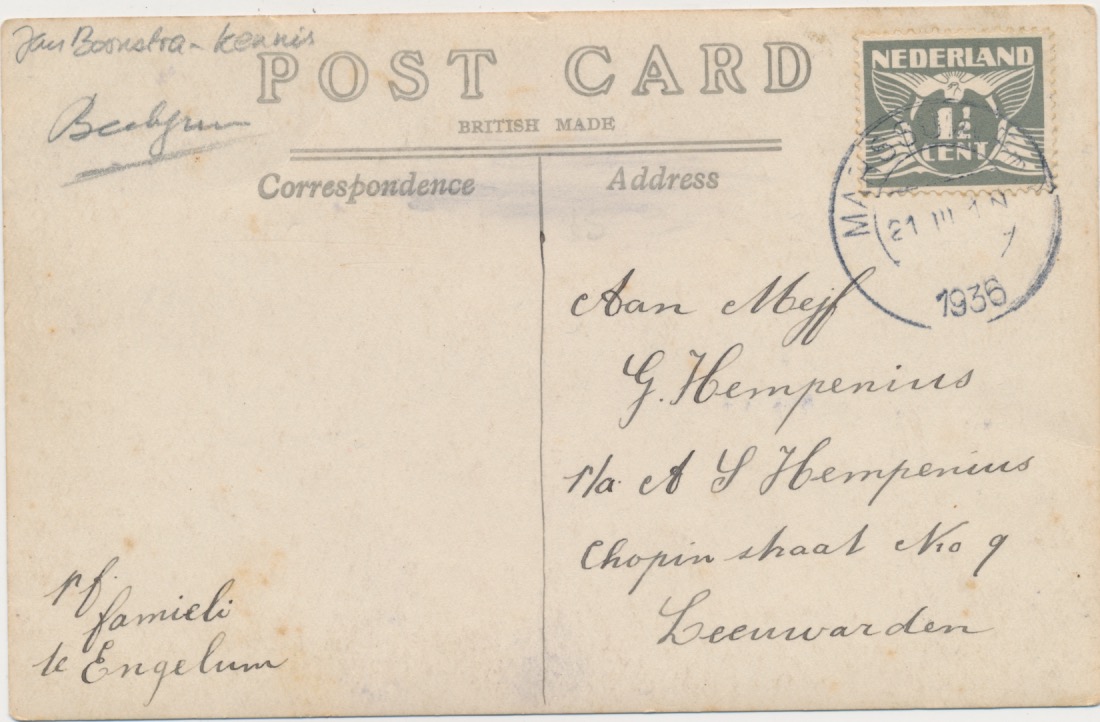 Jan Boonstra - kennis
POST CARD
BRITISH MADE
Correspondence
Address
NEDERLAND
1½
CENT
21 III 1936
Aan Mejf
G. Hempenius
p/a A S Hempenius
Chopin straat No 9
Leeuwarden
pf.
famieli
te Engelum